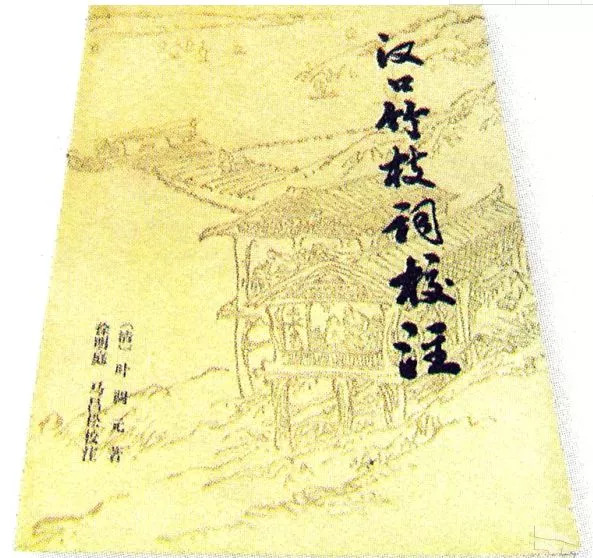 汉口竹枝词校注
〔清〕叶调元 著
徐明庭 马昌松校注